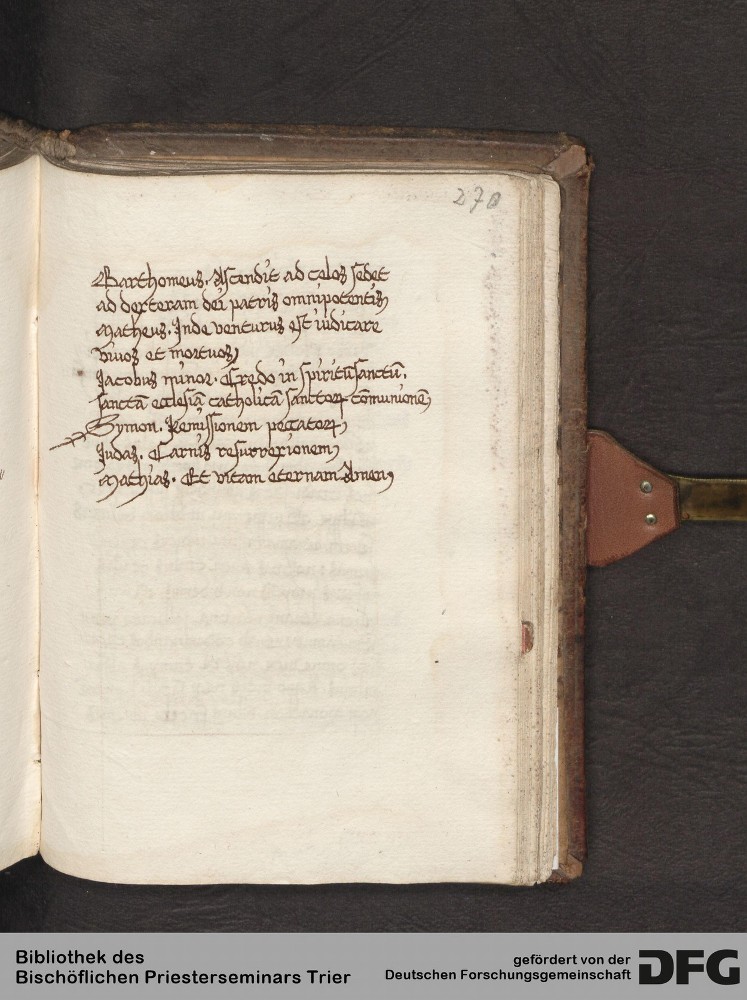 270
Barthomeus. Ascendit ad celos sedet
ad dexteram dei patris omnipotentis
Matheus. Inde venturus est iudicare
vivos et mortuos
Jacobus minor. Credo in spiritū sanctū.
sanctā ecclesiā catholicā sanctoꝝ comunionē
Symon. Remissionem peccatoꝝ
Judas. Carnis resurrexionem
Mathias. Et vitam eternam Amen
Bibliothek des
Bischöflichen Priesterseminars Trier
gefördert von der
Deutschen Forschungsgemeinschaft
DFG